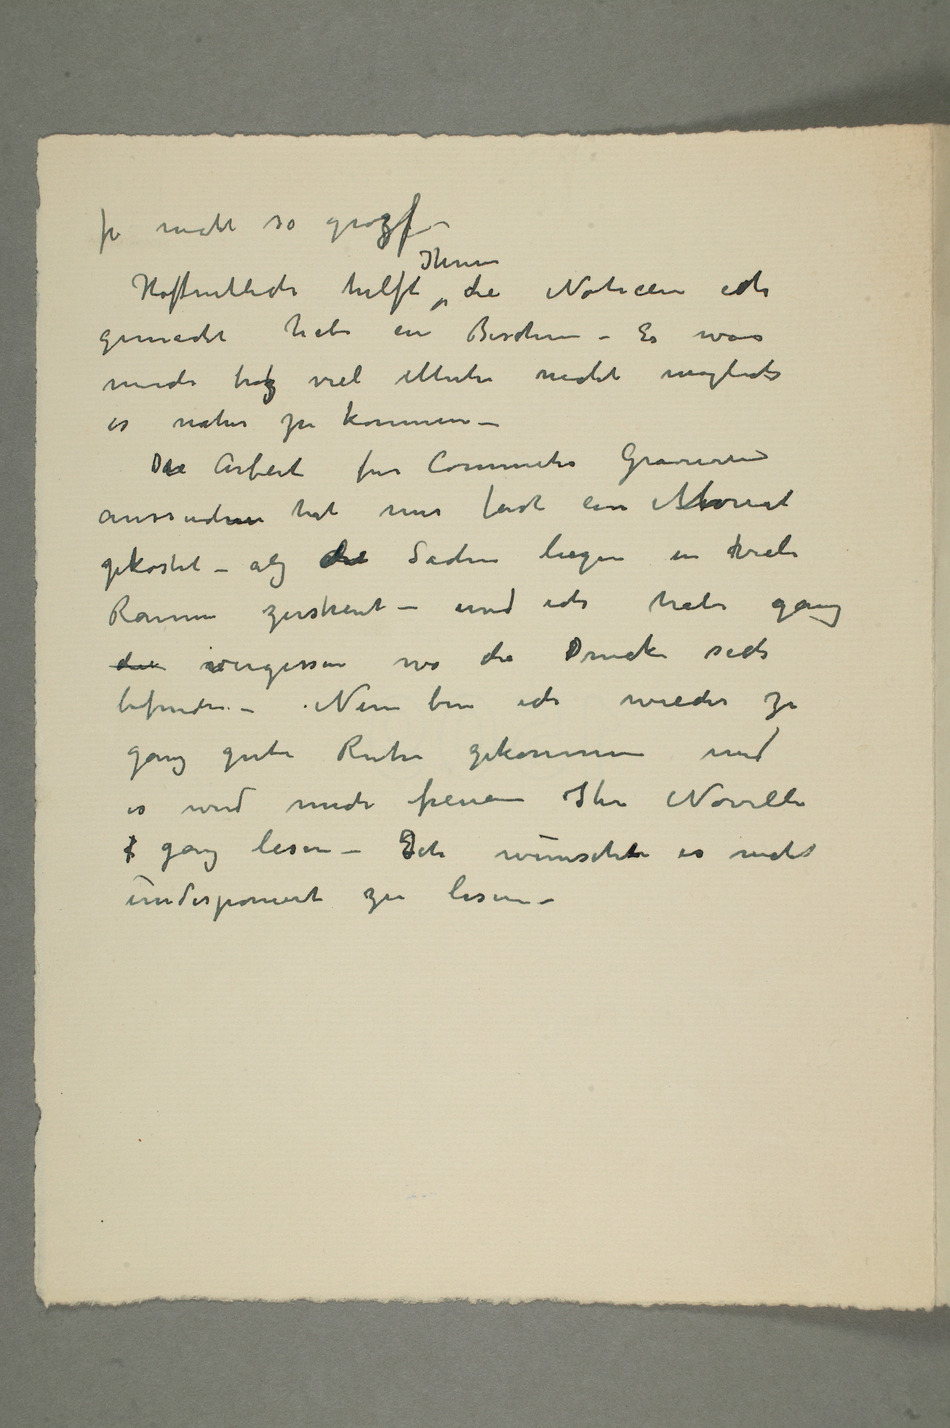 ja nicht so groß –
Hoffentlich helft Ihnen die Noticen ich
gemacht habe ein Bischen – Es war
mich trotz viel Mühe nicht möglich
es näher zu kommen –
Die Arbeit für Commeter Gravüren
aussuchen hat mir fast ein Monat
gekostet – alz die Sachen liegen in viele
Räume zerstreut – und ich habe ganz
die vergessen wo die Drucke sich
befinden – Nun bin ich wieder zu
ganz gute Ruhe gekommen und
es wird mich freuen Ihre Novelle
z ganz lesen – Ich wünschte es nicht
indisponiert zu lesen –